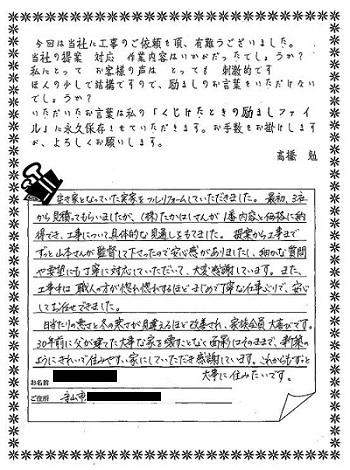 今回は当社に工事のご依頼を頂、有難うございました。
当社の提案 対応 作業内容はいかがだったでしょうか?
私にとって お客様の声は とっても 刺激的です
ほんの少しで結構ですので、励ましのお言葉をいただけない
でしょうか?
いただいたお言葉は私の「くじけたときの励ましファイ
ル」に永久保存させていただきます。お手数をお掛けします
が、よろしくお願いします。
高橋 勉
空き家となっていた実家をフルリフォームしていただきました。最初、3社
から見積ってもらいましたが、(株)たかはしさんが1番内容と価格に納
得でき、工事について具体的な見通しをもてました。提案から工事まで
ずっと山本さんが監督して下さったので安心感がありましたし、細かな質問
や要望にも丁寧に対応していただいて、大変感謝しています。また、
工事中は職人の方が惚れ惚れするほどまじめで丁寧な仕事ぶりで、安心
してお任せできました。
日当たりの悪さと冬の寒さが見違えるほど改善され、家族全員大喜びです。
30年前に父が建てた大事な家を壊すことなく面影はそのままで、新築の
ようにきれいで住みやすい家にしていただき感謝しています。これからもずっと
大事に住みたいです。
お名前
ご住所